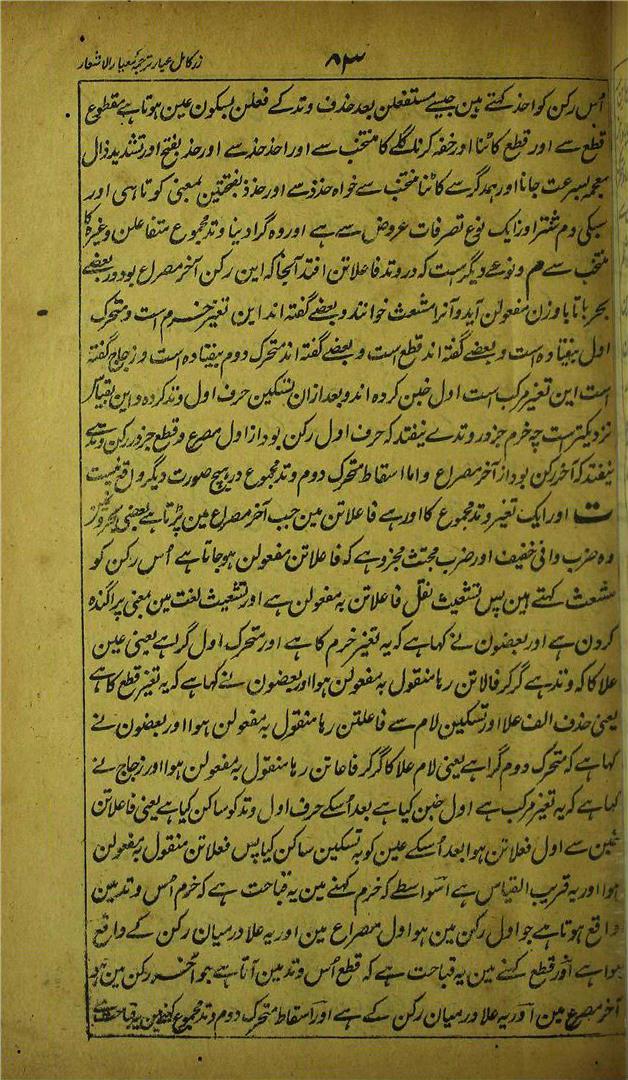 ۸۳
زر کامل عیار ترجمۂ معیار الاشعار
اُس رکن کو احذ کہتے ہین جیسے مستفعلن بعد حذف وتد کے فعلن بسکون عین ہوتا ہے مقطوع
قطع سے اور قطع کاٹنا اور خفہ کرنا گلے کا منتخب سے اور احذ حذذ سے اور حذ بفتح اور تشدید ذال
معجمہ بسرعت جانا اور ہمدگر سے کاٹنا منتخب سے خواہ حذذ سے اور حذذ بفتحتین بمعنی کوتاہی اور
سبکی دم شتر اور ایک نوع تصرفات عروض سے ہے اور وہ گرا دینا وتد مجموع متفاعلن وغیرہ کا
منتخب سے م و نوعے دیگر ست کہ در وتد فاعلاتن افتد آنجا کہ این رکن آخر مصراع بود در بعضے
بحرہا تا با وزن مفعولن آید و آنرا مشعث خوانند و بعضے گفتہ اند این تغیر خرم است و متحرک
اول بیفتادہ است و بعضے گفتہ اند قطع است و بعضے گفتہ اند متحرک دوم بیفتادہ است و زجاج گفتہ
است این تغیر مرکب است اول خبن کردہ اند و بعد ازان تسکین حرف اول وتد کردہ و این بقیاس
نزدیکتر ست چہ خرم جز در وتدے نیفتد کہ حرف اول رکن بود از اول مصرع و قطع جز در رکن وتدے
نیفتد کہ آخر رکن بود از آخر مصراع و اما اسقاط متحرک دوم وتد مجموع در ہیچ صورت دیگر واقع نیست
ت اور ایک تغیر وتد مجموع کا اور ہے فاعلاتن مین جب آخر مصراع مین پڑتا ہے بعضی بحرون
وہ ضرب وافی خفیف اور ضرب مجتث مجزو ہے کہ فاعلاتن مفعولن ہو جاتا ہے اُس رکن کو
مشعث کہتے ہین پس تشعیث نقل فاعلاتن بہ مفعولن ہے اور تشعیث لغت مین بمعنی پراگندہ
کردن ہے اور بعضون نے کہا ہے کہ یہ تغیر خرم کا ہے اور متحرک اول گرا ہے یعنی عین
علا کا کہ وتد ہے گر کر فالاتن رہا منقول بہ مفعولن ہوا اور بعضون نے کہا ہے کہ یہ تغیر قطع کا ہے
یعنی حذف الف علا اور تسکین لام سے فاعلتن رہا منقول بہ مفعولن ہوا اور بعضون نے
کہا ہے کہ متحرک دوم گرا ہے یعنی لام علا کا گر کر فاعاتن رہا منقول بہ مفعولن ہوا اور زجاج نے
کہا ہے کہ یہ تغیر مرکب ہے اول خبن کیا ہے بعد اُسکے حرف اول وتد کو ساکن کیا ہے یعنی فاعلاتن
خبن سے اول فعلاتن ہوا بعد اُسکے عین کو بہ تسکین ساکن کیا پس فعلاتن منقول بہ مفعولن
ہوا اور یہ قریب القیاس ہے اسواسطے کہ خرم کہنے مین یہ قباحت ہے کہ خرم اُس وتد مین
واقع ہوتا ہے جو اول رکن مین ہو اول مصراع مین اور یہ علا درمیان رکن کے واقع
ہوا ہے اور قطع کہنے مین یہ قباحت ہے کہ قطع اُس وتد مین آتا ہے جو آخر رکن مین ہو
آخر مصرع مین اور یہ علا درمیان رکن کے ہے اور اسقاط متحرک دوم وتد مجموع کہنے مین یہ قباحت ہے